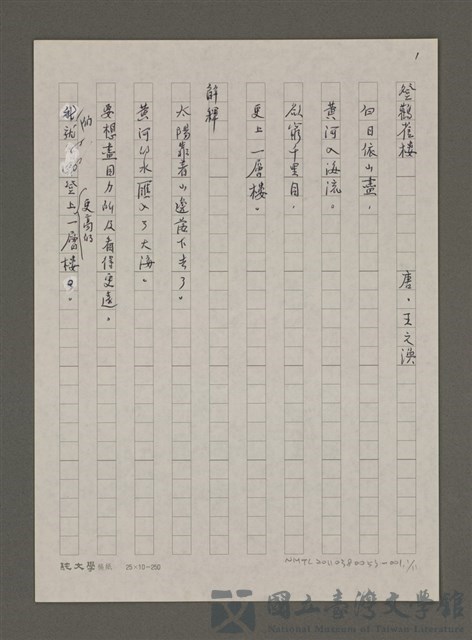 1
登鸛雀樓 唐．王之渙
白日依山盡，
黃河入海流。
欲窮千里目，
更上一層樓。
解釋
太陽靠著山邊落下去了。
黃河的水匯入了大海。
要想盡目力所及看得更遠，
就 登上 更高的 一層的樓。
純文學稿紙 25×10=250
NMTL20110380053-001
國立臺灣文學館
National Museum of Taiwan Literature